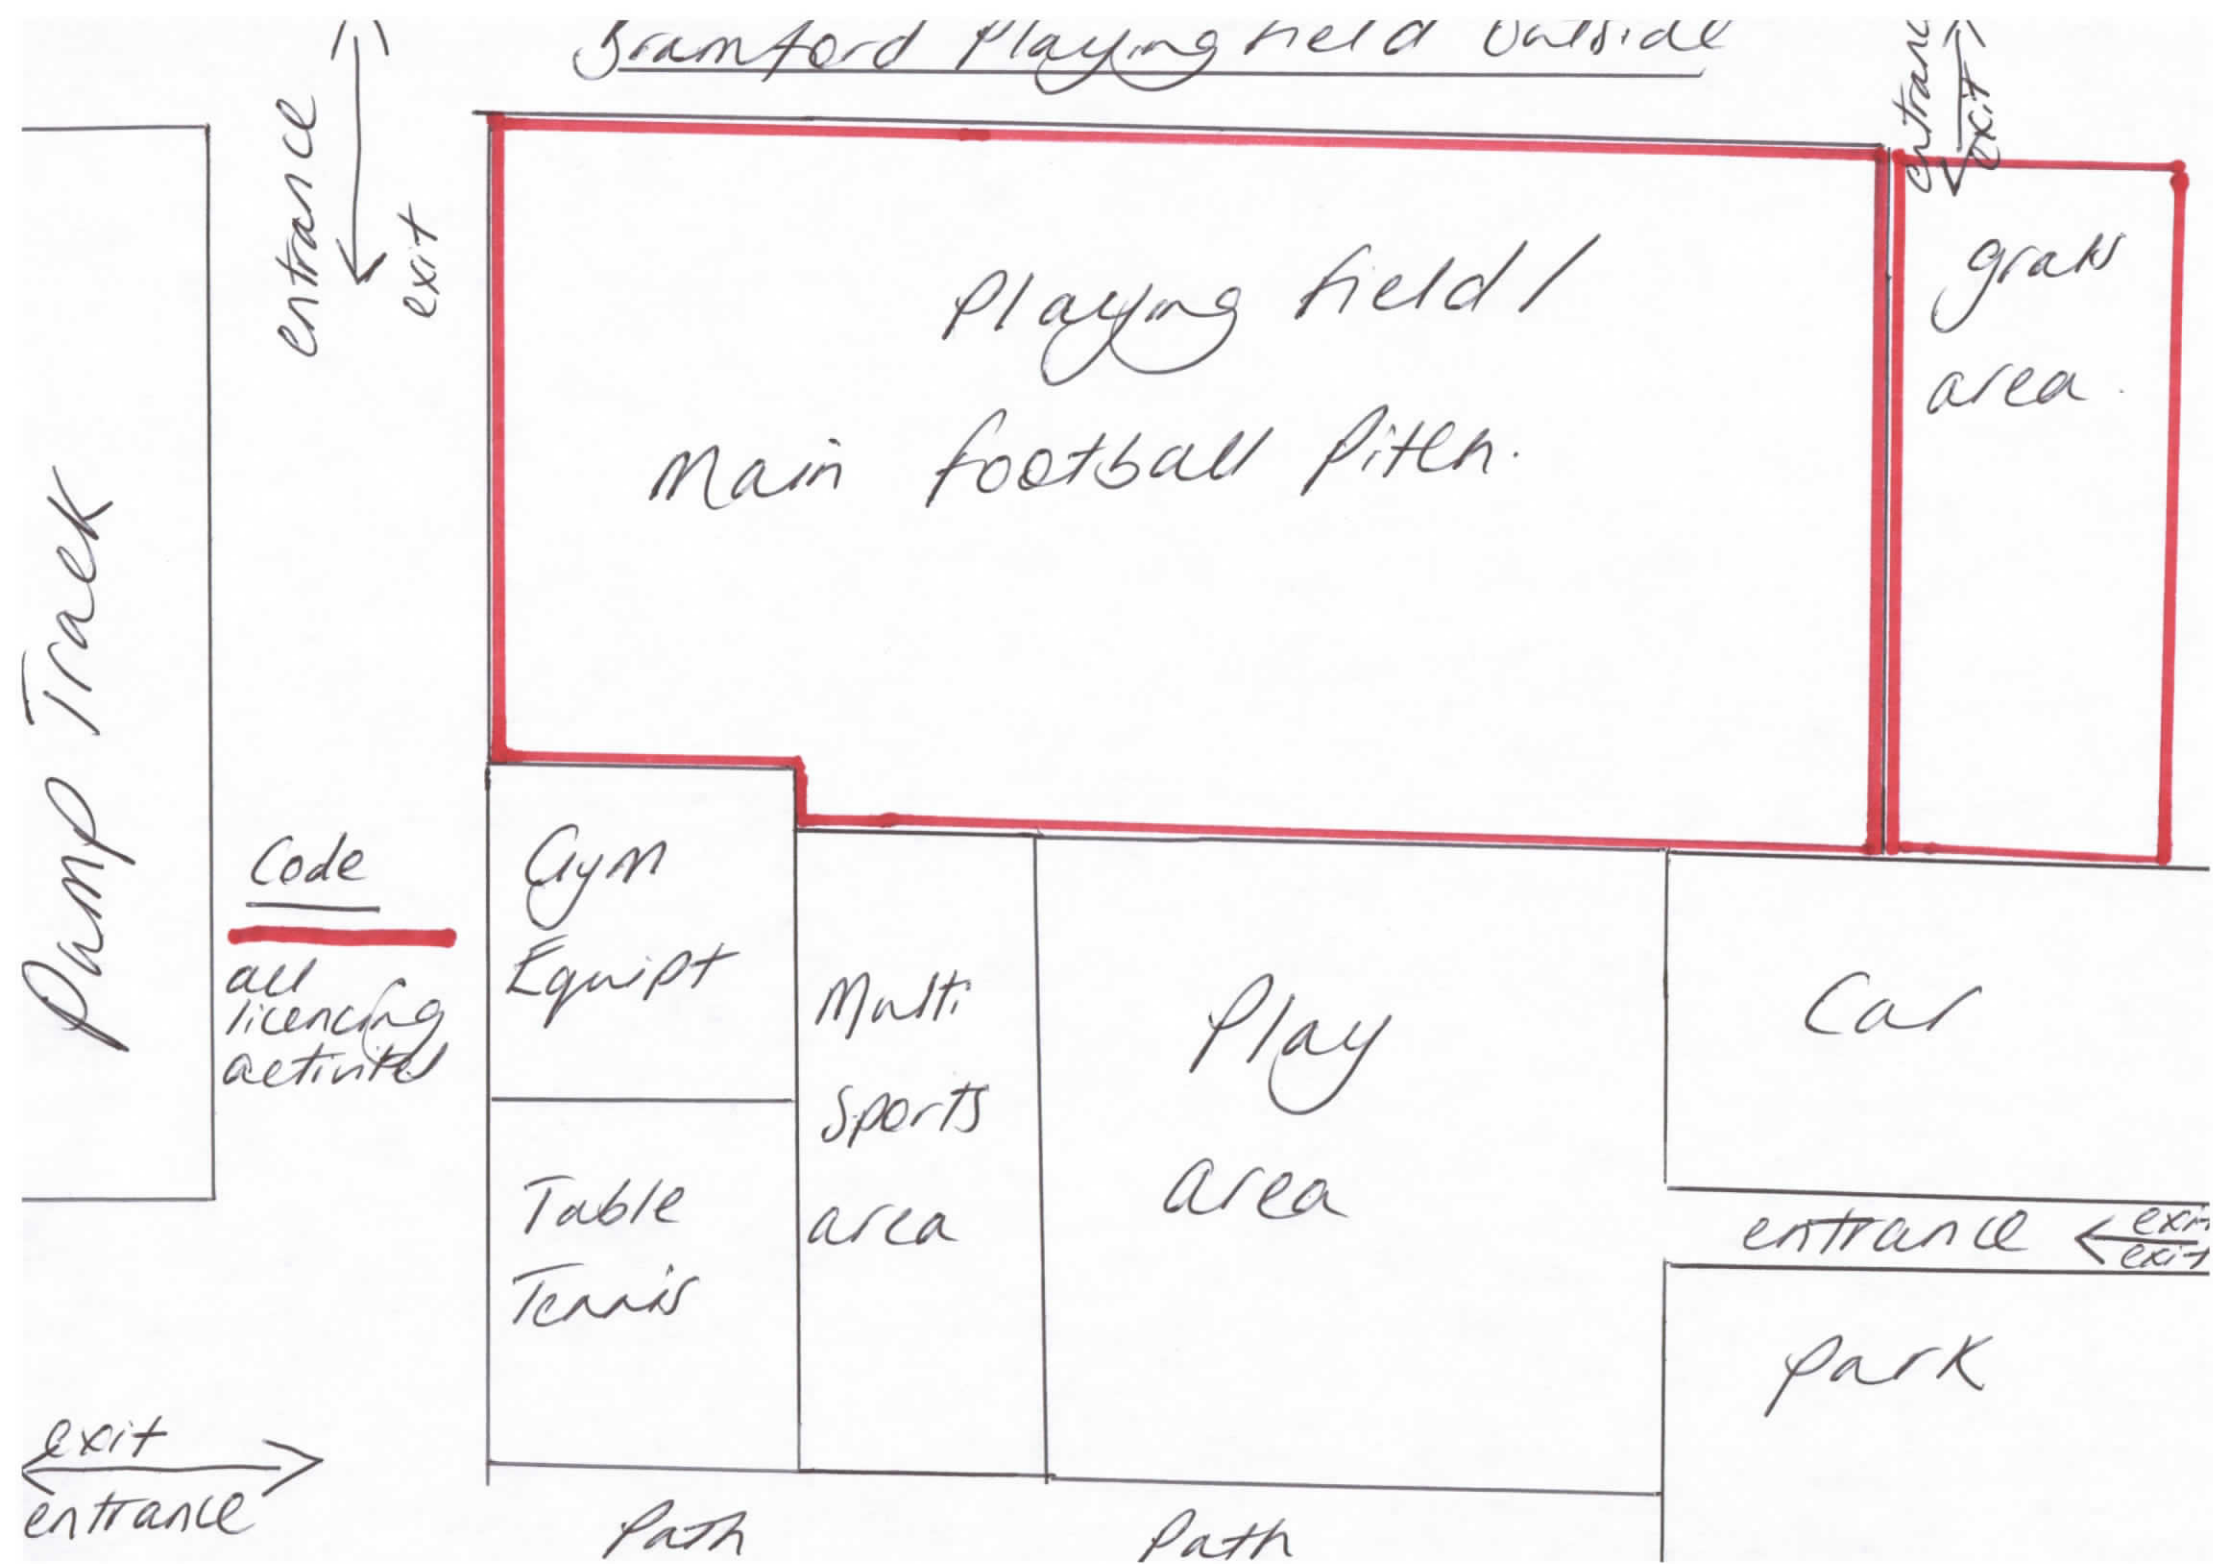 Bramford Playing field Outside
entrance
exit
entrance
exit
Playing field/
Main football Pitch.
grass
area.
Pump Track
Code
all
licencing
activites
Gym
Equipt
Table
Tennis
Multi
Sports
area
Play
area
Car
entrance
exit
exit
Park
exit
entrance
Path
Path